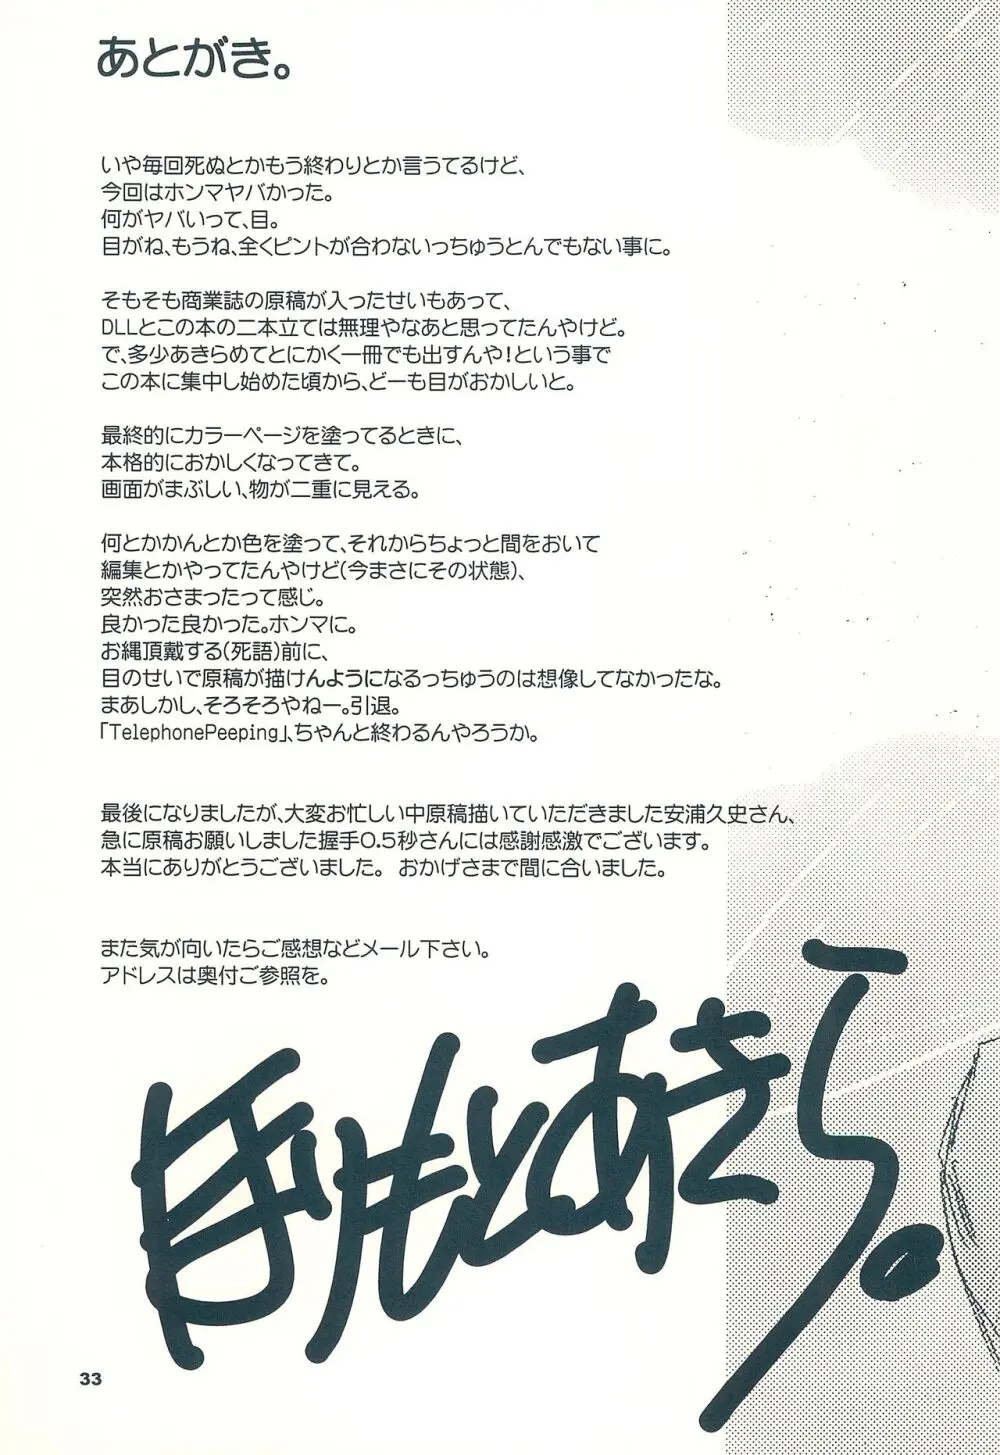 あとがき。
いや毎回死ぬとかもう終わりとか言うてるけど、
今回はホンマヤバかった。
何がヤバいって、目。
目がね、もうね、全くピントが合わないっちゅうとんでもない事に。
そもそも商業誌の原稿が入ったせいもあって、
DLLとこの本の二本立ては無理やなあと思ってたんやけど。
で、多少あきらめてとにかく一冊でも出すんや!という事で
この本に集中し始めた頃から、どーも目がおかしいと。
最終的にカラーページを塗ってるときに、
本格的におかしくなってきて。
画面がまぶしい、物が二重に見える。
何とかかんとか色を塗って、それからちょっと間をおいて
編集とかやってたんやけど(今まさにその状態)、
突然おさまったって感じ。
良かった良かった。ホンマに。
お縄頂戴する(死語)前に、
目のせいで原稿が描けんようになるっちゅうのは想像してなかったな。
まあしかし、そろそろやねー。引退。
「TelephonePeeping」、ちゃんと終わるんやろうか。
最後になりましたが、大変お忙しい中原稿描いていただきました安浦久史さん、
急に原稿お願いしました握手0.5秒さんには感謝感激でございます。
本当にありがとうございました。 おかげさまで間に合いました。
また気が向いたらご感想などメール下さい。
アドレスは奥付ご参照を。
33